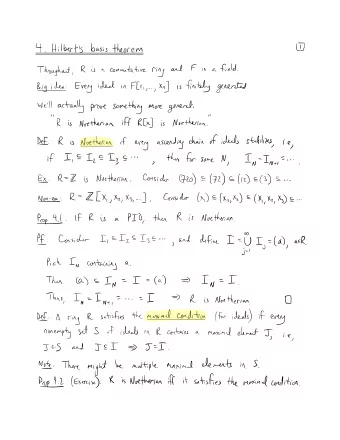 4. Hilbert's basis theorem 1
Throughout, R is a commutative ring and F is a field.
Big idea: Every ideal in F[x₁,..., xₙ] is finitely generated
We'll actually prove something more general:
"R is Noetherian iff R[x] is Noetherian."
Def: R is Noetherian if every ascending chain of ideals stabilizes, i.e.,
if I₁ ⊆ I₂ ⊆ I₃ ⊆ ··· , then for some N, I_N = I_{N+1} = ···.
Ex: R=Z is Noetherian. Consider (720) ⊆ (72) ⊆ (12) ⊆ (3) ⊆ ···
Non-ex: R = Z[x₁, x₂, x₃, ...]. Consider (x₁) ⊆ (x₁,x₂) ⊆ (x₁, x₂, x₃) ⊆ ···
Prop 4.1: If R is a PID, then R is Noetherian.
Pf: Consider I₁ ⊆ I₂ ⊆ I₃ ⊆ ··· , and define I = ∞⋃j=1 I_j = (a), a∈R.
Pick I_N containing a.
Then (a) ⊆ I_N ⊆ I = (a) ⇒ I_N = I.
Thus, I_N = I_{N+1} = ··· = I ⇒ R is Noetherian □
Def: A ring R satisfies the maximal condition (for ideals) if every
nonempty set S of ideals in R contains a maximal element J, i.e.,
J∈S and J ⊆ I ⇒ J=I.
Note: There might be multiple maximal elements in S.
Prop 4.2 (Exercise): R is Noetherian iff it satisfies the maximal condition.